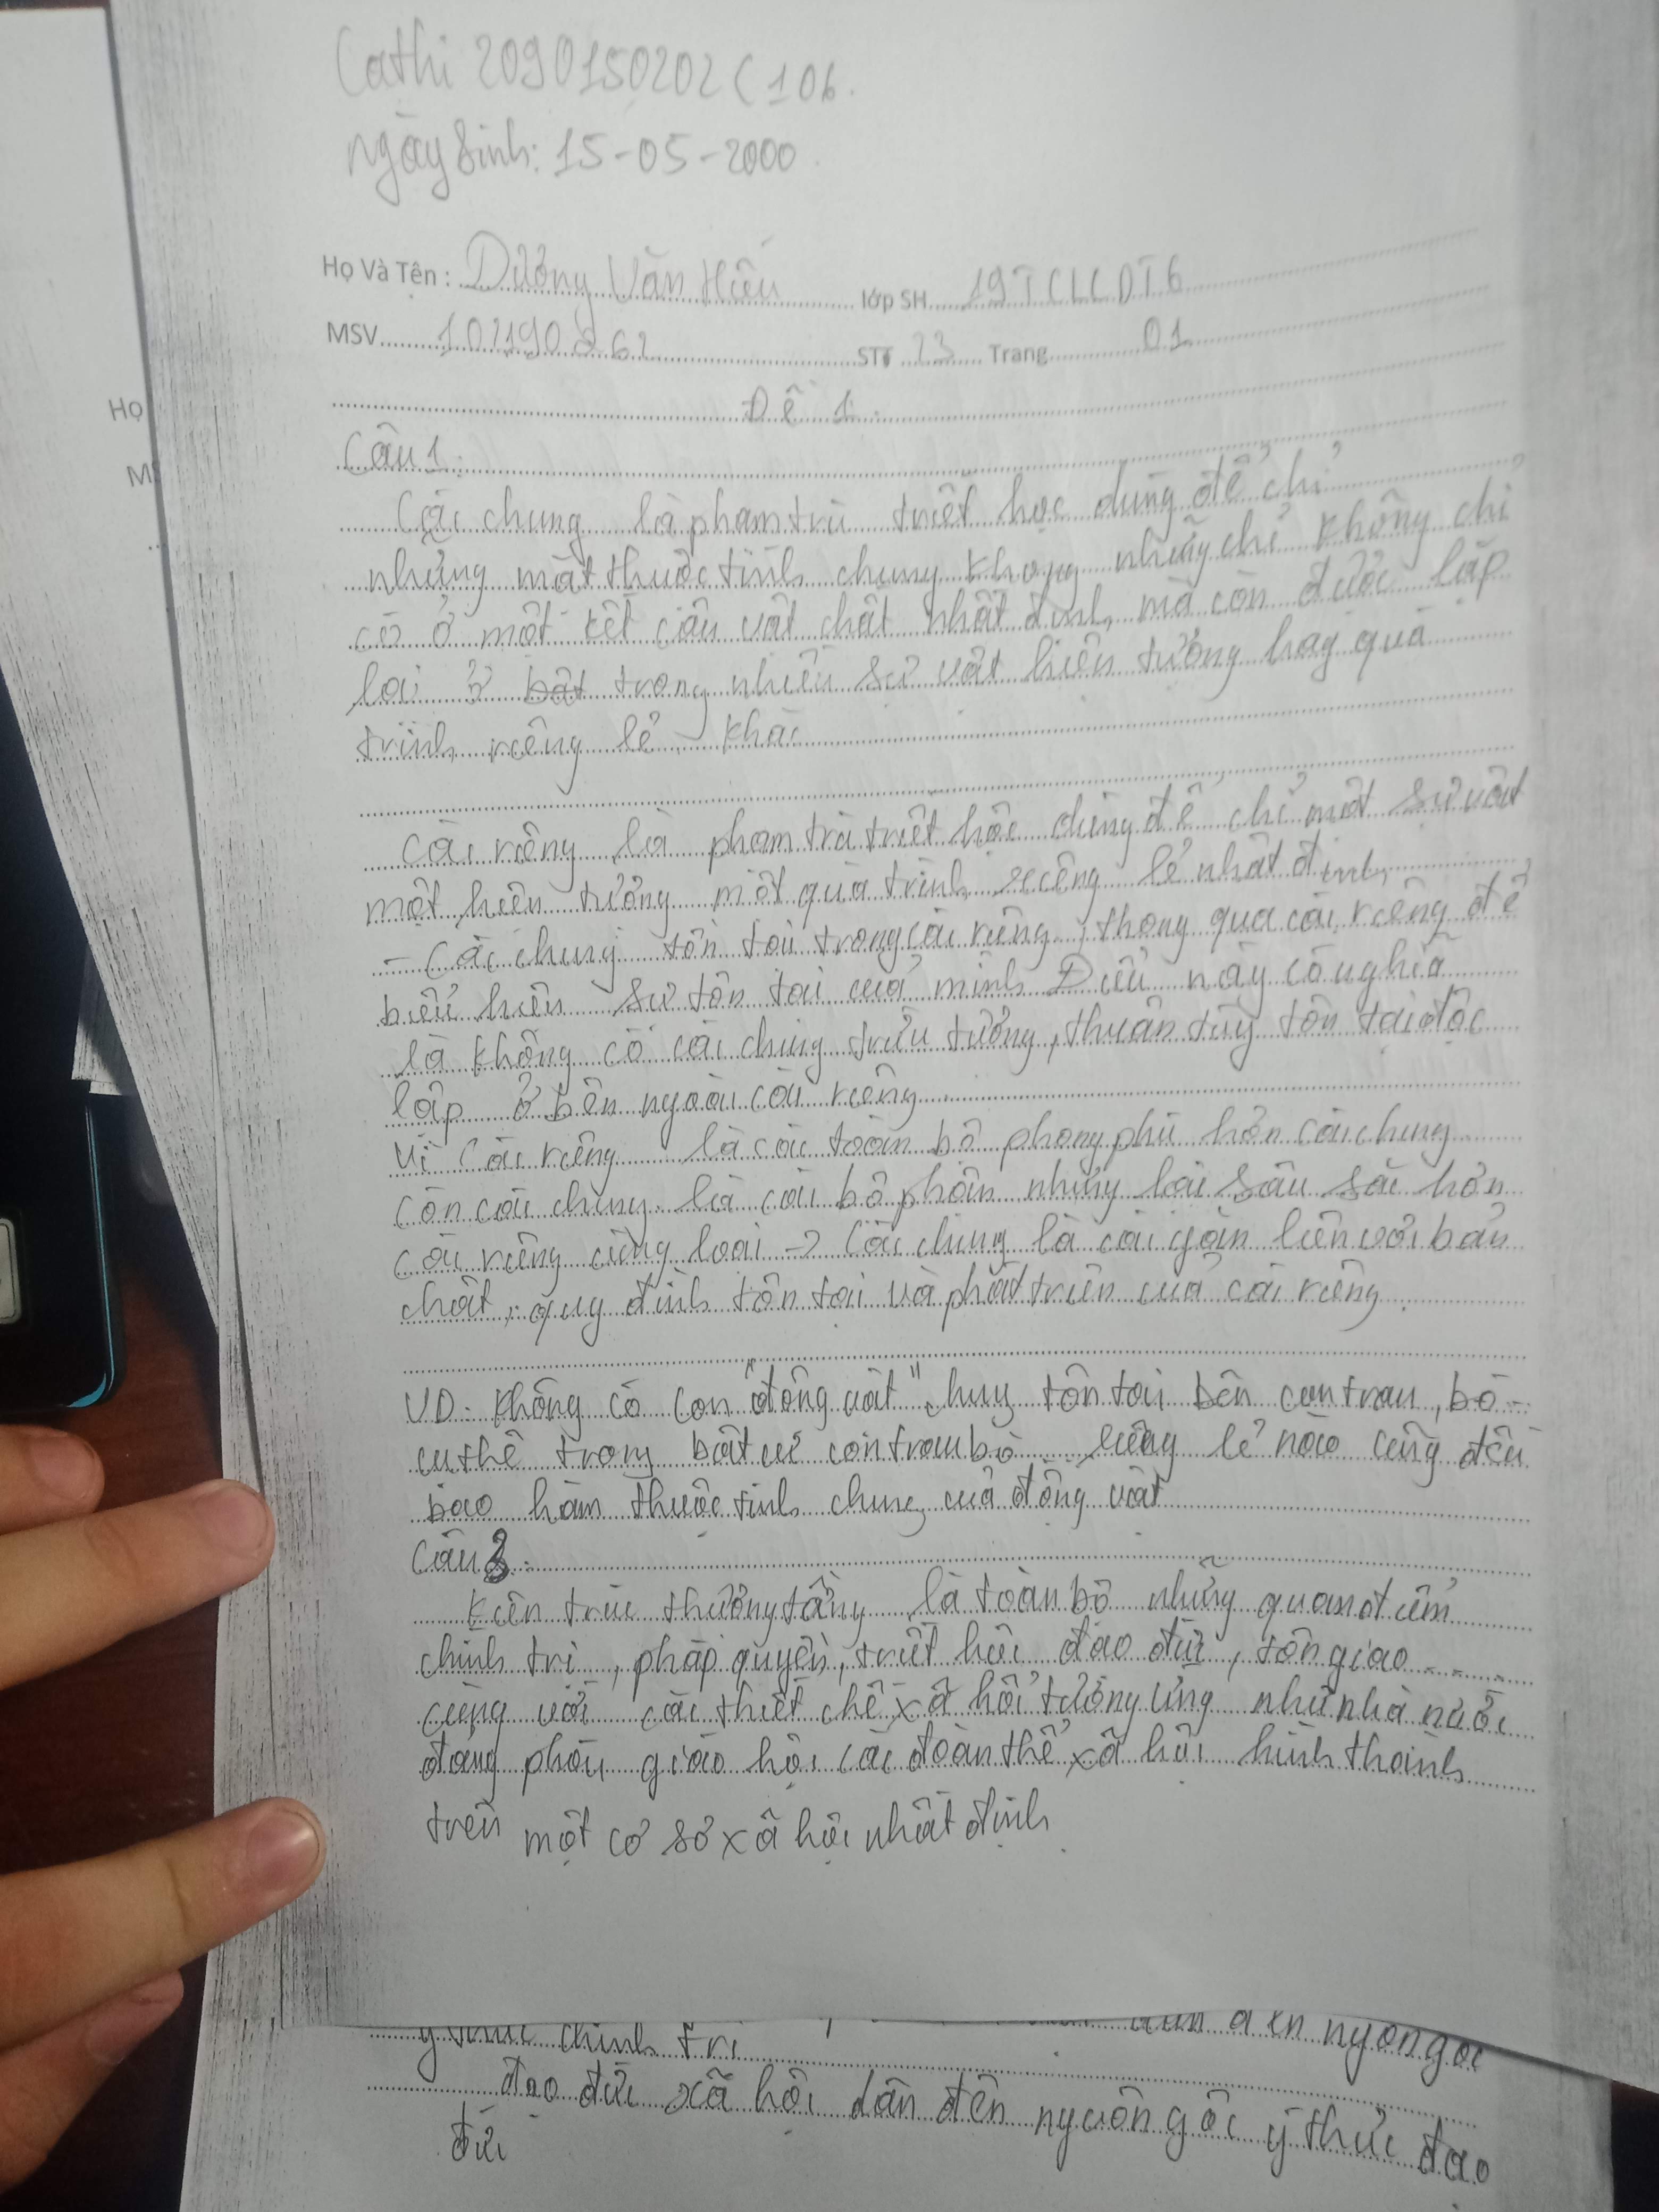 Ca thi 2090150202 C 106.
Ngày sinh: 15-05-2000.
Họ Và Tên : Dương Văn Hiếu lớp SH 19TCLCDT6
MSV 102190262 STT 23 Trang 01
Họ
Đề 1.
Câu 1:
Cái chung là phạm trù triết học dùng để chỉ
những mặt thuộc tính chung không những chỉ không chỉ
có ở một kết cấu vật chất nhất định, mà còn được lặp
lại ở bất trong nhiều sự vật hiện tượng hay quá
trình riêng lẻ khác
Cái riêng là phạm trù triết học dùng để chỉ một sự vật
một hiện tượng một quá trình riêng lẻ nhất định
- Cái chung tồn tại trong cái riêng, thông qua cái riêng để
biểu hiện sự tồn tại của mình Điều này có nghĩa
là không có cái chung trừu tượng, thuần túy tồn tại độc
lập ở bên ngoài cái riêng
Vì Cái riêng là cái toàn bộ phong phú hơn cái chung
còn cái chung là cái bộ phận nhưng lại sâu sắc hơn
cái riêng cùng loại → Cái chung là cái gắn liền với bản
chất, quy định tồn tại và phát triển của cái riêng.
VD: Không có con "động vật" chung tồn tại bên con trâu, bò
cụ thể trong bất cứ con trâu bò riêng lẻ nào cũng đều
bao hàm thuộc tính chung của động vật
Câu 3:
Kiến trúc thượng tầng là toàn bộ những quan điểm
chính trị, pháp quyền, triết học đạo đức, tôn giáo....
cùng với các thiết chế xã hội tương ứng như nhà nước
đảng phái giáo hội các đoàn thể xã hội hình thành
trên một cơ sở xã hội nhất định
chính trị đến nguồn gốc
đạo đức xã hội dẫn đến nguồn gốc ý thức đạo
đức